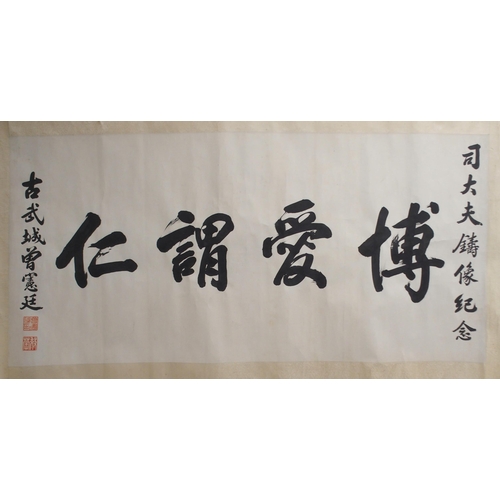 司大夫鑄像紀念
博愛謂仁
古武城曾憲廷